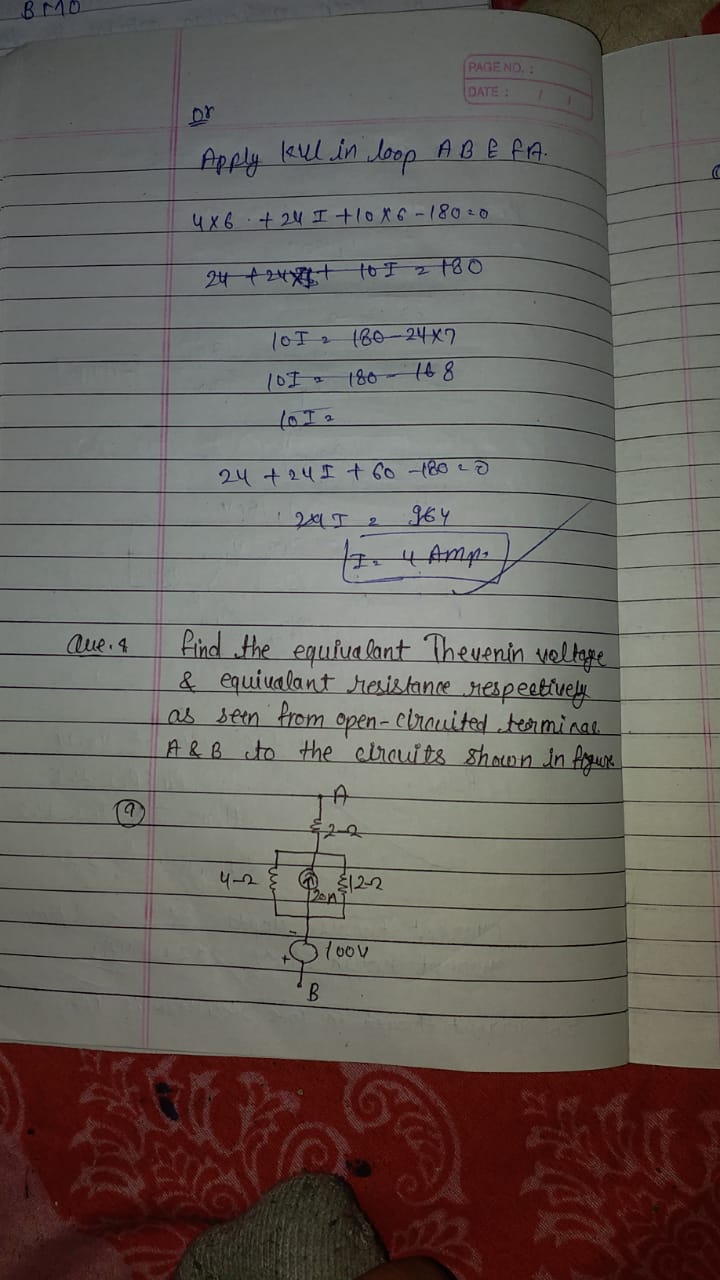 BMO
PAGE NO. :
DATE : / /
or
Apply kvl in loop A B E F A.
4x6 + 24 I + 10 x 6 - 180 = 0
24 + 24 + 10 I = 180
10I = 180 - 24x7
10I = 180 - 168
10I =
24 + 24 I + 60 - 180 = 0
24 I = 964
I = 4 Amp.
Que. 8 find the equiualant Thevenin voltage
& equiualant resistance respectively
as seen from open-circuited terminal
A & B to the circuits shown in figure
A
2Ω
4Ω
20A
12Ω
-
+
100V
B